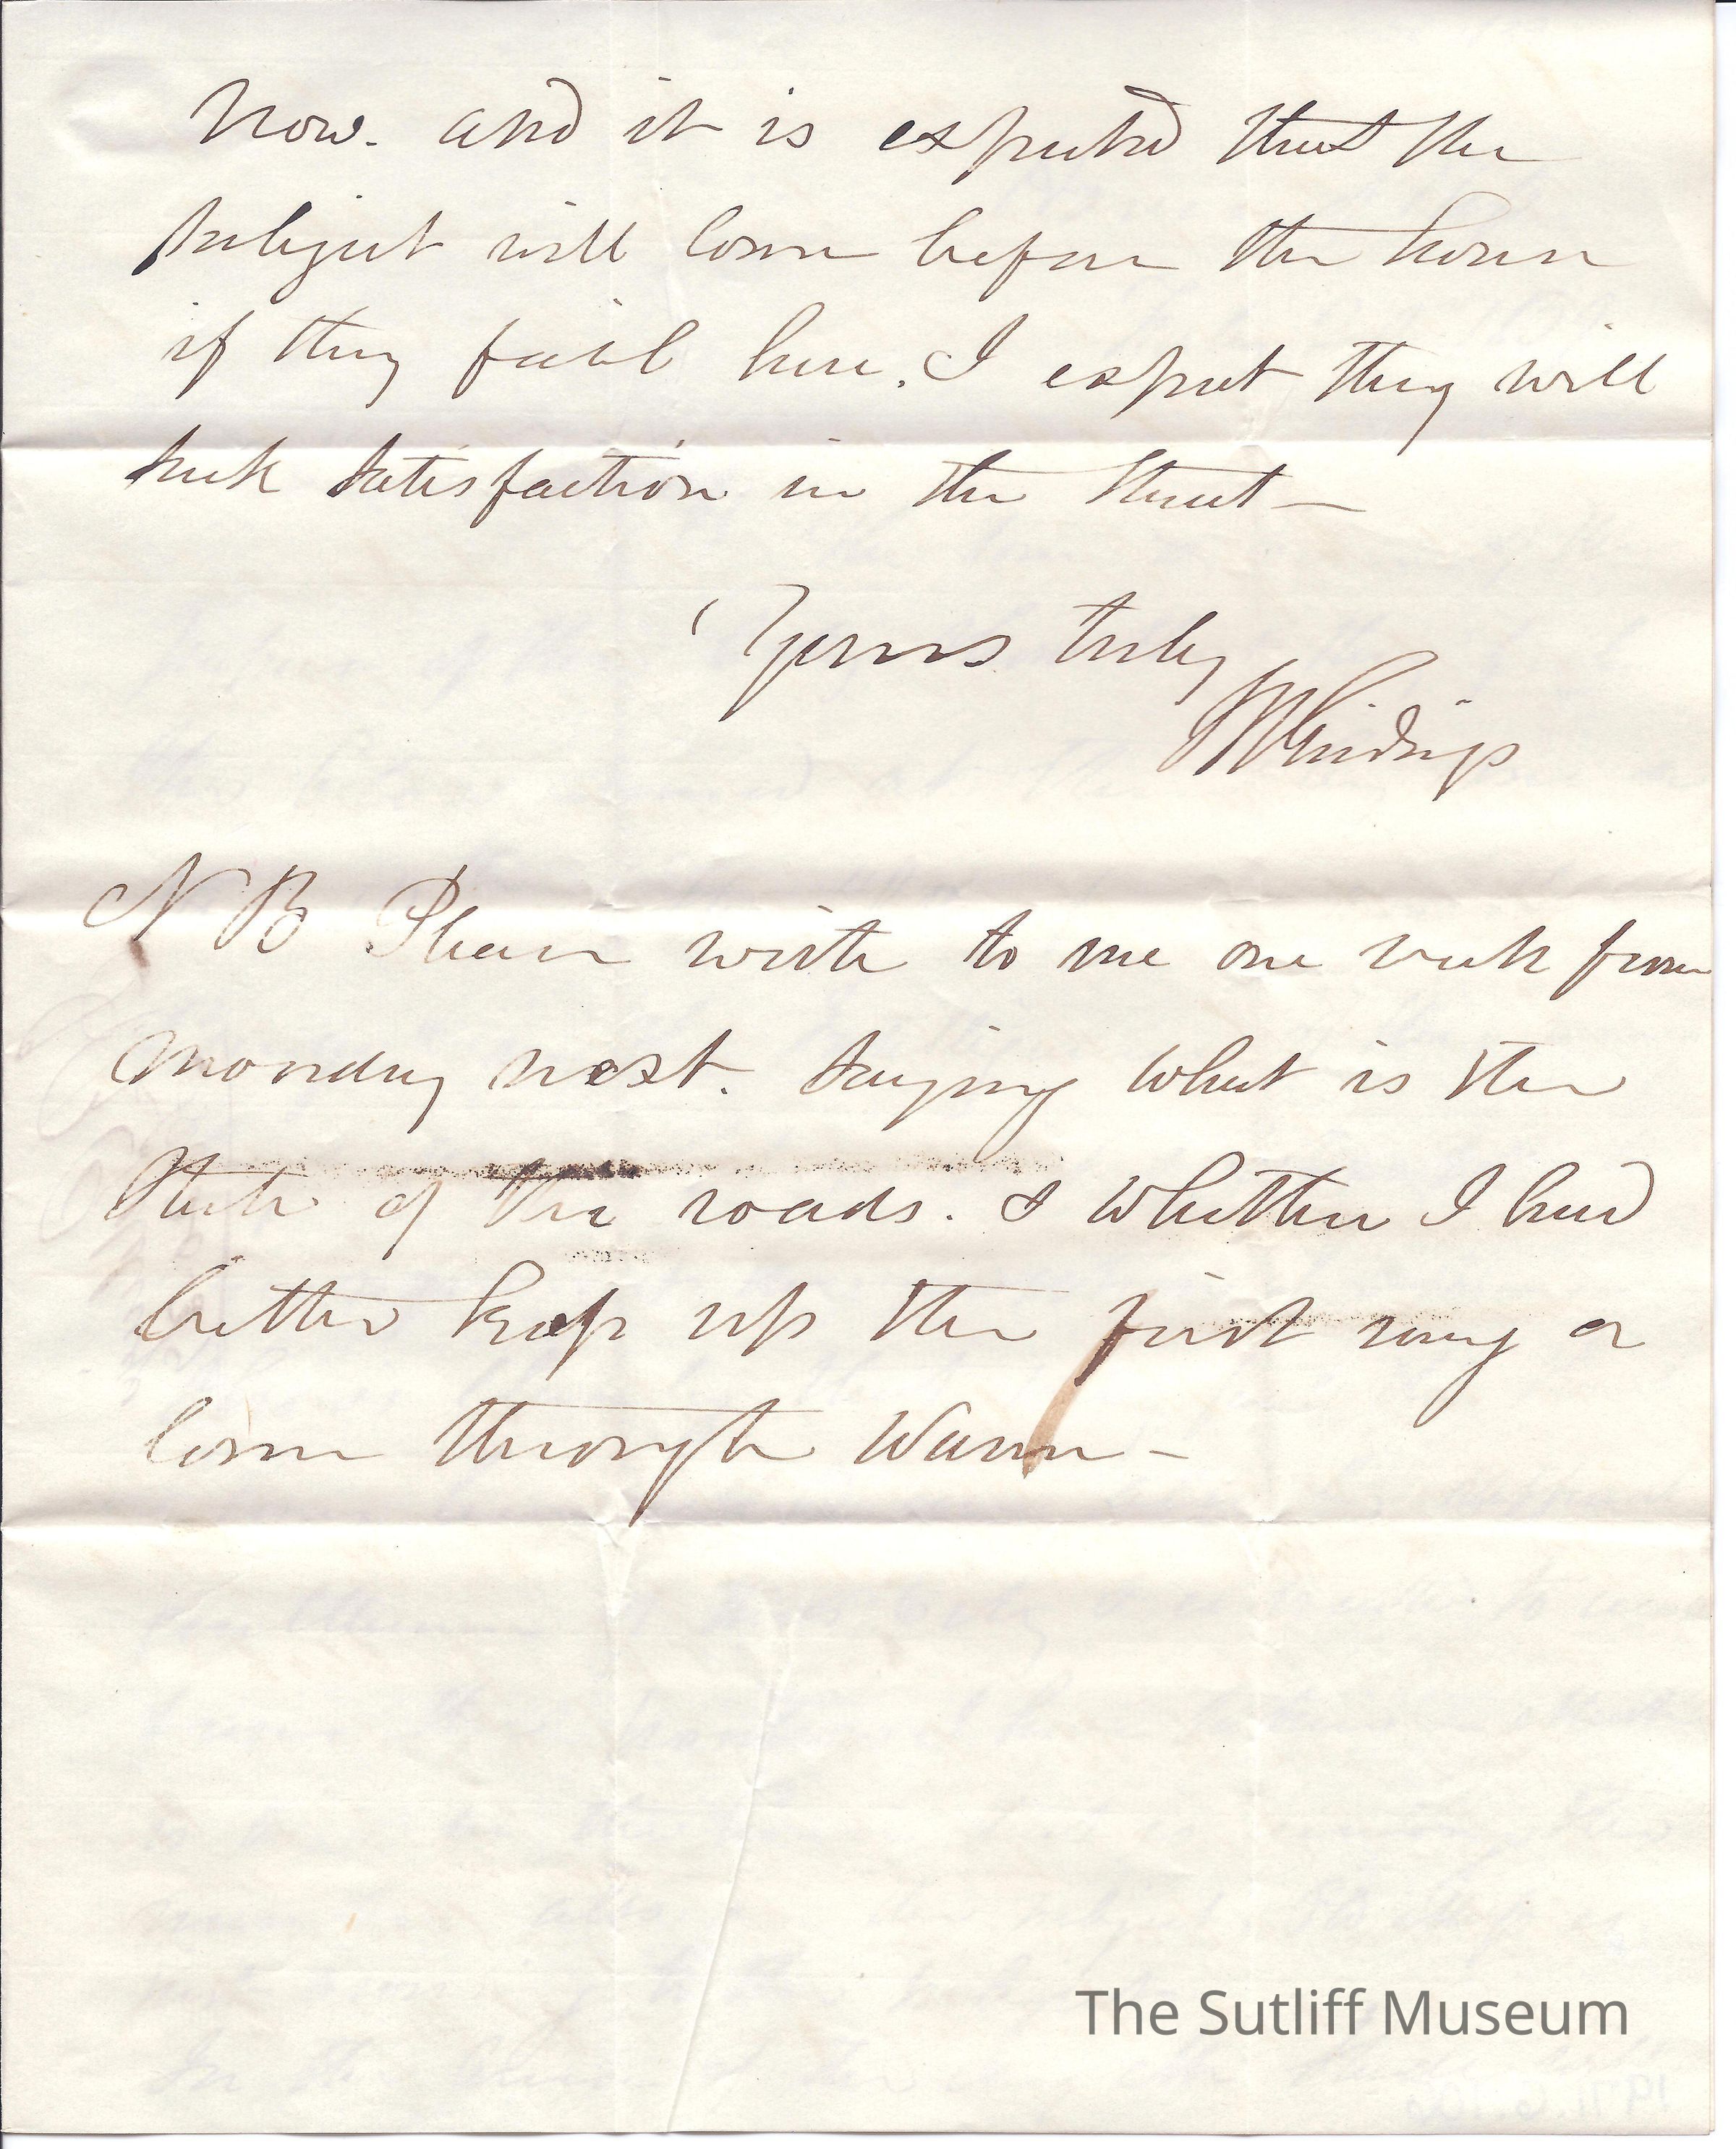 now. and it is expected that the
subject will come before the house
if they fail here. I expect they will
seek satisfaction in the street —
Yours truly
J R Giddings
N B Please write to me one week from
monday next. saying what is the
state of the roads. & whether I had
better keep up the first way or
come through Warren —
The Sutliff Museum